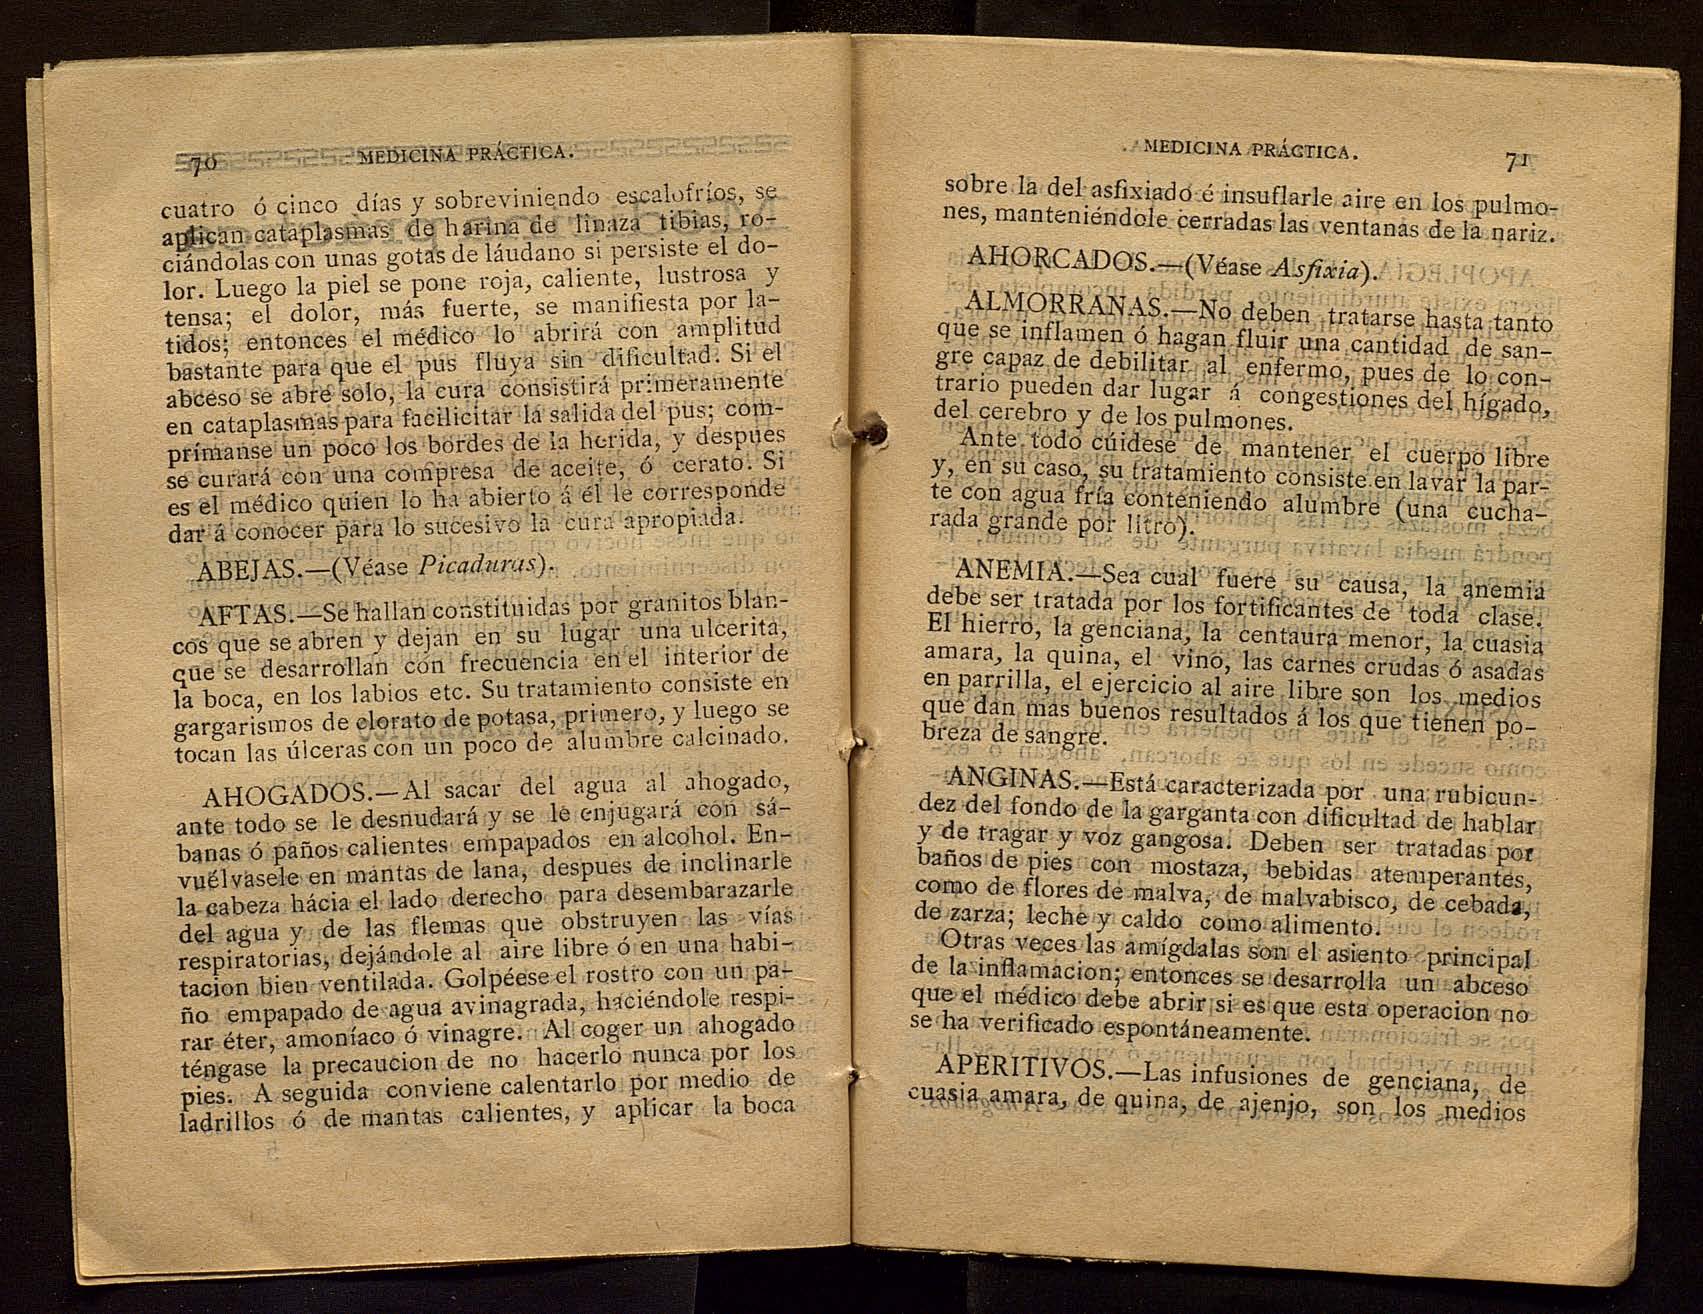 70 MEDICINA PRÁCTICA.
cuatro ó cinco días y sobreviniendo escalofríos, se
aplican cataplasmas de harina de linaza tibias, ro-
ciándolas con unas gotas de láudano si persiste el do-
lor. Luego la piel se pone roja, caliente, lustrosa y
tensa; el dolor, más fuerte, se manifiesta por la-
tidos; entonces el médico lo abrirá con amplitud
bastante para que el pus fluya sin dificultad. Si el
abceso se abre solo, la cura consistirá primeramente
en cataplasmas para facilicitar la salida del pus; com-
prímanse un poco los bordes de la herida, y despues
se curará con una compresa de aceite, ó cerato. Si
es el médico quien lo ha abierto á él le corresponde
dar á conocer para lo sucesivo la cura apropiada.
ABEJAS.—(Véase Picaduras).
AFTAS.—Se hallan constituidas por granitos blan-
cos que se abren y dejan en su lugar una ulcerita,
que se desarrollan con frecuencia en el interior de
la boca, en los labios etc. Su tratamiento consiste en
gargarismos de clorato de potasa, primero, y luego se
tocan las úlceras con un poco de alumbre calcinado.
AHOGADOS.—Al sacar del agua al ahogado,
ante todo se le desnudará y se le enjugará con sá-
banas ó paños calientes empapados en alcohol. En-
vuélvasele en mantas de lana, despues de inclinarle
la cabeza hácia el lado derecho para desembarazarle
del agua y de las flemas que obstruyen las vías
respiratorias, dejándole al aire libre ó en una habi-
tacion bien ventilada. Golpéese el rostro con un pa-
ño empapado de agua avinagrada, haciéndole respi-
rar éter, amoníaco ó vinagre. Al coger un ahogado
téngase la precaucion de no hacerlo nunca por los
pies. A seguida conviene calentarlo por medio de
ladrillos ó de mantas calientes, y aplicar la boca
5
MEDICINA PRÁCTICA. 71
sobre la del asfixiado é insuflarle aire en los pulmo-
nes, manteniéndole cerradas las ventanas de la nariz.
AHORCADOS.—(Véase Asfixia).
ALMORRANAS.—No deben tratarse hasta tanto
que se inflamen ó hagan fluir una cantidad de san-
gre capaz de debilitar al enfermo, pues de lo con-
trario pueden dar lugar á congestiones del hígado,
del cerebro y de los pulmones.
Ante todo cúidese de mantener el cuerpo libre
y, en su caso, su tratamiento consiste en lavar la par-
te con agua fría conteniendo alumbre (una cucha-
rada grande por litro).
ANEMIA.—Sea cual fuere su causa, la anemia
debe ser tratada por los fortificantes de toda clase.
El hierro, la genciana, la centaura menor, la cuasia
amara, la quina, el vino, las carnes crudas ó asadas
en parrilla, el ejercicio al aire libre son los medios
que dan más buenos resultados á los que tienen po-
breza de sangre.
ANGINAS.—Está caracterizada por una rubicun-
dez del fondo de la garganta con dificultad de hablar
y de tragar y voz gangosa. Deben ser tratadas por
baños de pies con mostaza, bebidas atemperantes,
como de flores de malva, de malvabisco, de cebada,
de zarza; leche y caldo como alimento.
Otras veces las amígdalas son el asiento principal
de la inflamacion; entonces se desarrolla un abceso
que el médico debe abrir si es que esta operacion no
se ha verificado espontáneamente.
APERITIVOS.—Las infusiones de genciana, de
cuasia amara, de quina, de ajenjo, son los medios